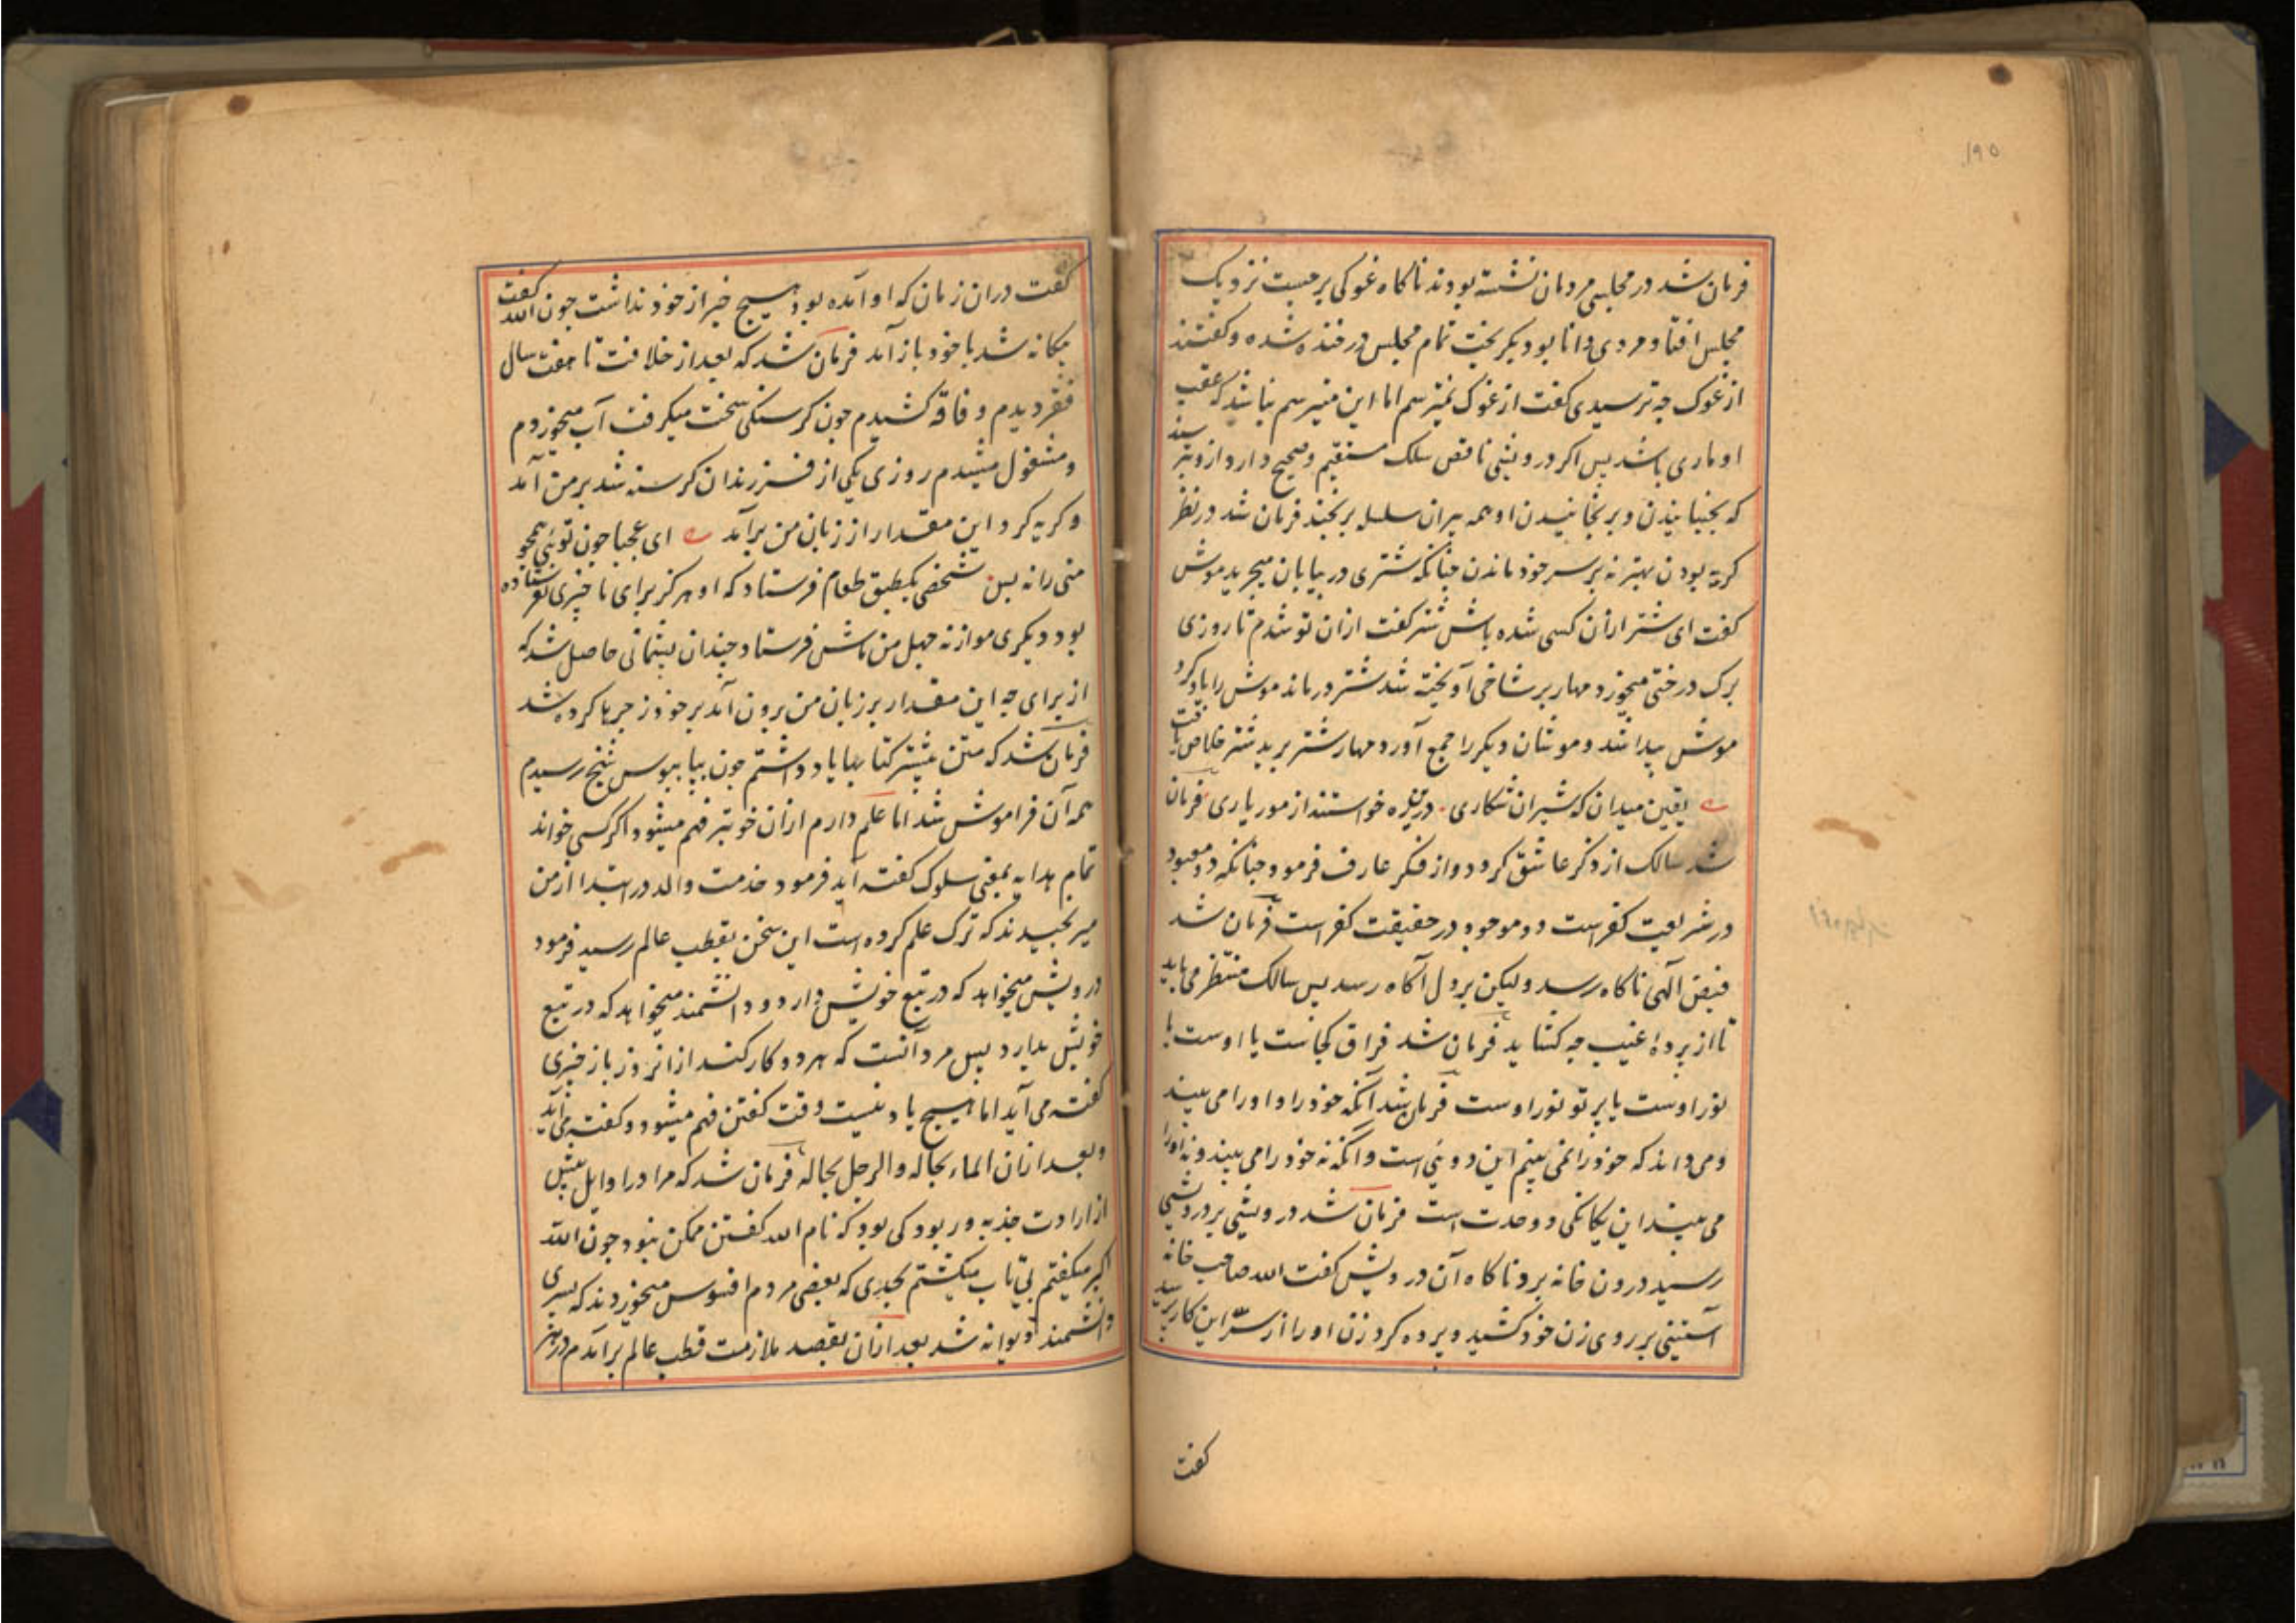 ۱۹۵
فرمان شد در مجلسی مردمان نشسته بودند ناکاه غوکی برجست نزدیک
مجلس افتاد مردی دانا بود بکریخت تمام مجلس در خنده شده و کفتند
از غوک چه ترسیدی کفت از غوک نمیترسم اما این میترسم نباشد که عقب
او ماری باشد پس اکر درویشی ناقص سلک مستقیم و صحیح دارد ازو بترسند
که بجنبانیدن و برنجانیدن او همه پیران سلسله برنجند فرمان شد در نظر
کربه بودن بهتر نه بر سر خود ماندن چنانکه شتری در بیابان میچرید موش
کفت ای شتر ازان کسی شده باش شتر کفت ازان تو شدم تا روزی
برک درختی میخورد مهار بر شاخی آویخته شد شتر درماند موش را یاد کرد
موش پیدا شد و موشان دیکر را جمع آورد مهار شتر برید شتر خلاص یافت
یقین میدان که شیران شکاری درین ره خواستند از مور یاری فرمان
شد سالک از ذکر عاشق کردد و از فکر عارف فرمود چنانکه دو معبود
در شریعت کفر است دو موجود در حقیقت کفر است فرمان شد
فیض آلهی ناکاه رسد ولیکن بر دل آکاه رسد پس سالک منتظر می باید
تا از پردهٔ غیب چه کشاید فرمان شد فراق کجاست یا اوست یا
نور اوست یا پرتو نور اوست فرمان شد آنکه خود را و او را می بیند
و می داند که خود را نمی بینم این دوئی است و آنکه نه خود را می بیند و نه او را
می بیند این یکانکی و وحدت است فرمان شد درویشی بر درویشی
رسید درون خانه برد ناکاه آن درویش کفت الله صاحب خانه
آستینی بر روی زن خود کشید و پرده کرد زن او را از سرّ این کار پرسید
کفت
کفت دران زمان که او آمده بود هیچ خبر از خود نداشت چون الله کفت
بکانه شد با خود باز آمد فرمان شد که بعد از خلافت تا هفت سال
فقر دیدم و فاقه کشیدم چون کرسنکی سخت میکرفت آب میخوردم
و مشغول میشدم روزی یکی از فرزندان کرسنه شد بر من آمد
و کریه کرد این مقدار از زبان من برآمد ای عجبا چون توئی همچو
منی را نه بس شخصی یکطبق طعام فرستاد که او هرکز برای ما چیزی نفرستاده
بود دیکری موازنه چهل من ماش فرستاد چندان پشیمانی حاصل شد که
از برای چه این مقدار بر زبان من برون آمد بر خود زجرها کرده شد
فرمان شد که متن بیشتر کتابها یاد داشتم چون بپایبوس شیخ رسیدم
همه آن فراموش شد اما علم دارم ازان خوبتر فهم میشود اکر کسی خواند
تمام هدایه بمعنی سلوک کفته آید فرمود خدمت والد در ابتدا از من
میرنجیدند که ترک علم کرده است این سخن بقطب عالم رسید فرمود
درویش میخواهد که در تبع خویش دارد و دانشمند میخواهد که در تبع
خویش بدارد پس مرد آنست که هر دو کار کند ازانروز باز چیزی
کفته می آید اما هیچ یاد نیست وقت کفتن فهم میشود و کفته می آید
و بعد ازان الماء بحاله و الرجل بحاله فرمان شد که مرا در اوایل پیش
از ارادت جذبه و ربودکی بود که نام الله کفتن ممکن نبود چون الله
اکبر میکفتم بی تاب میکشتم بحدی که بعضی مردم افسوس میخوردند که پسری
دانشمند دیوانه شد بعد ازان بقصد ملازمت قطب عالم برآمدم در هر